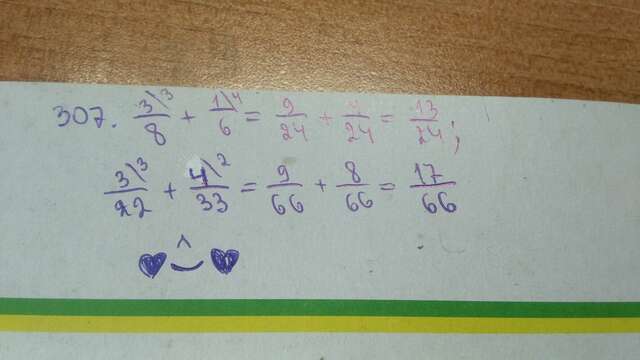 307. 3\3/8 + 1\4/6 = 9/24 + 4/24 = 13/24;
3\3/22 + 4\2/33 = 9/66 + 8/66 = 17/66